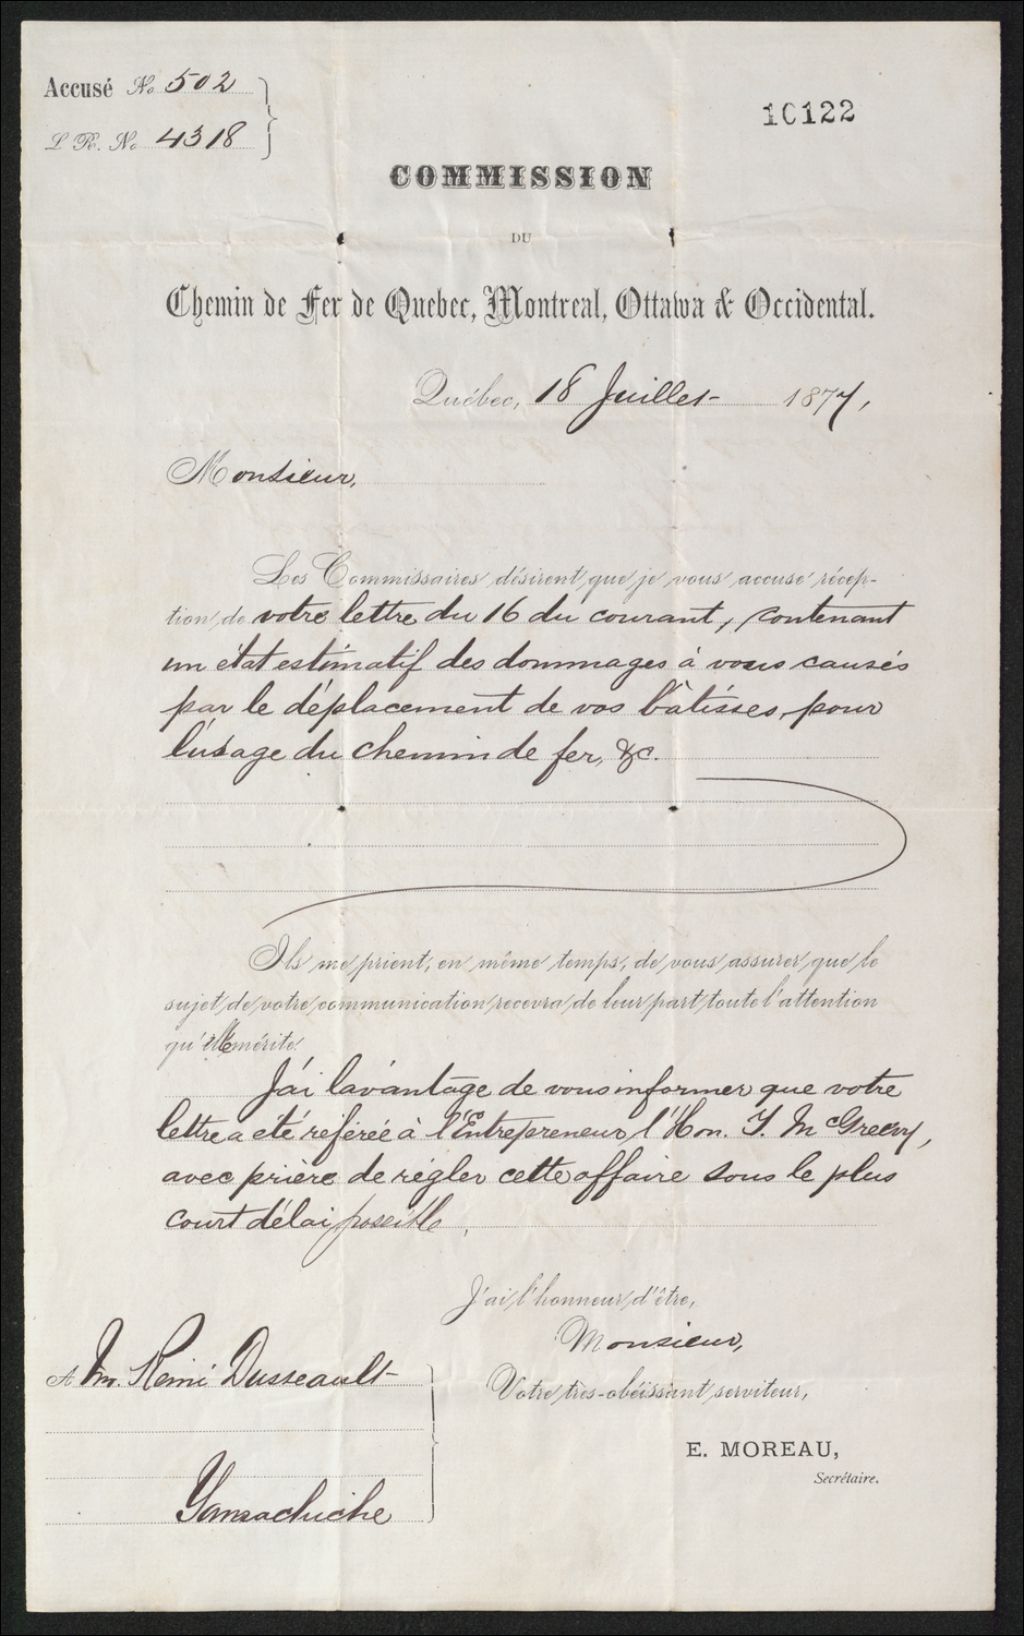 Accusé No 502
L. R. No 4318
10122
COMMISSION
DU
Chemin de Fer de Quebec, Montreal, Ottawa & Occidental.
Québec, 18 Juillet 1877,
Monsieur,
Les Commissaires désirent que je vous accuse récep-
tion de votre lettre du 16 du courant, contenant
un état estimatif des dommages à vous causés
par le déplacement de vos bâtisses, pour
l'usage du chemin de fer, &c.
Ils me prient, en même temps, de vous assurer que le
sujet de votre communication recevra de leur part toute l'attention
qu'elle mérite.
J'ai l'avantage de vous informer que votre
lettre a été référée à l'Entrepreneur l'Hon. T. McGreevy,
avec prière de régler cette affaire sous le plus
court délai possible.
J'ai l'honneur d'être,
Monsieur,
Votre très-obéissant serviteur,
E. MOREAU,
Secrétaire.
A M. Rémi Dusseault
Yamachiche